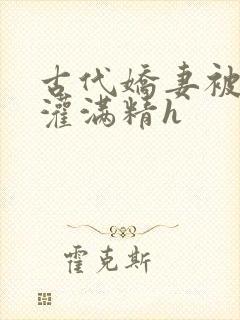 古代嬌妻被
灌满精h
霍克斯